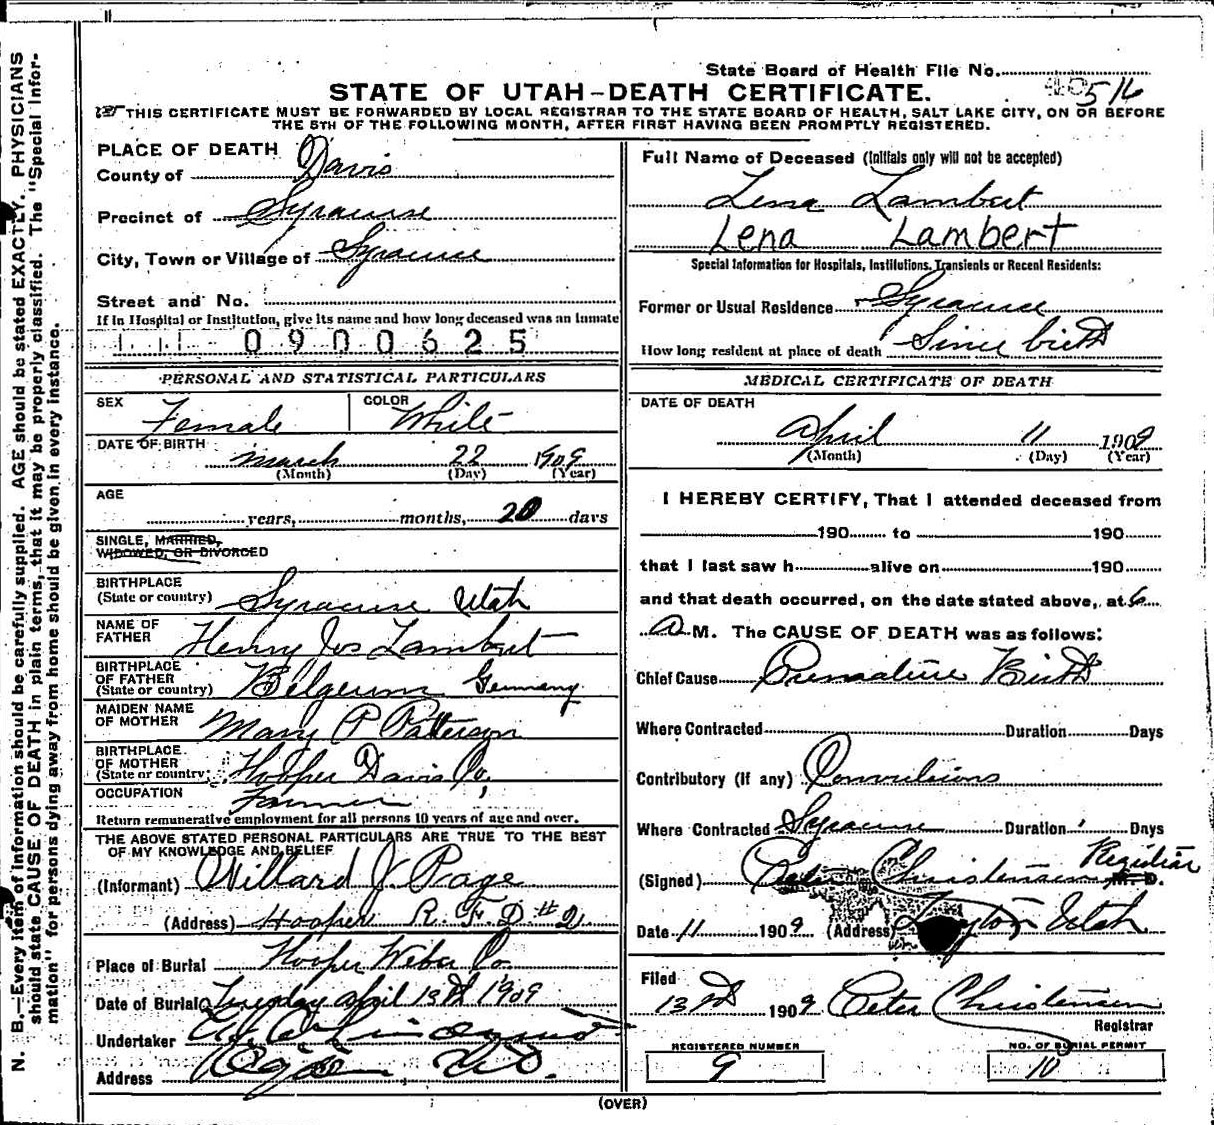 State Board of Health File No. 516
STATE OF UTAH—DEATH CERTIFICATE.
THIS CERTIFICATE MUST BE FORWARDED BY LOCAL REGISTRAR TO THE STATE BOARD OF HEALTH, SALT LAKE CITY, ON OR BEFORE
THE 5TH OF THE FOLLOWING MONTH, AFTER FIRST HAVING BEEN PROMPTLY REGISTERED.
N. B.—Every item of information should be carefully supplied. AGE should be stated EXACTLY. PHYSICIANS
should state CAUSE OF DEATH in plain terms, that it may be properly classified. The "Special Infor-
mation" for persons dying away from home should be given in every instance.
PLACE OF DEATH
County of Davis
Precinct of Syracuse
City, Town or Village of Syracuse
Street and No.
If in Hospital or Institution, give its name and how long deceased was an inmate
0900625
PERSONAL AND STATISTICAL PARTICULARS
SEX Female COLOR White
DATE OF BIRTH March 22 1909
(Month) (Day) (Year)
AGE
years, months, 20 days
SINGLE, MARRIED,
WIDOWED, OR DIVORCED
BIRTHPLACE
(State or country) Syracuse Utah
NAME OF
FATHER Henry Jos Lambert
BIRTHPLACE
OF FATHER
(State or country) Belgeum Germany
MAIDEN NAME
OF MOTHER Mary P Patterson
BIRTHPLACE
OF MOTHER
(State or country) Hooper Davis Co,
OCCUPATION Farmer
Return remunerative employment for all persons 10 years of age and over.
THE ABOVE STATED PERSONAL PARTICULARS ARE TRUE TO THE BEST
OF MY KNOWLEDGE AND BELIEF
(Informant) Willard J. Page
(Address) Hooper R. F. D. # 2
Place of Burial Hooper Weber Co.
Date of Burial Tuesday April 13th 1909
Undertaker
Address Ogden
Full Name of Deceased (Initials only will not be accepted)
Lena Lambert
Lena Lambert
Special Information for Hospitals, Institutions, Transients or Recent Residents:
Former or Usual Residence Syracuse
How long resident at place of death Since birth
MEDICAL CERTIFICATE OF DEATH
DATE OF DEATH
April 11 1909
(Month) (Day) (Year)
I HEREBY CERTIFY, That I attended deceased from
190 to 190
that I last saw h alive on 190
and that death occurred, on the date stated above, at 6
A M. The CAUSE OF DEATH was as follows:
Chief Cause Premature Birth
Where Contracted Duration Days
Contributory (if any) Convulsions
Where Contracted Syracuse Duration Days
Registrar
(Signed) Peter Christensen M. D.
Date 11 1909 (Address) Layton Utah
Filed
13th 1909 Peter Christensen
Registrar
REGISTERED NUMBER
9
NO. OF BURIAL PERMIT
10
(OVER)